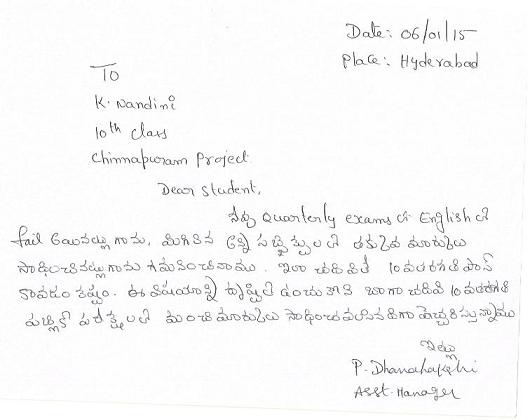 Date: 06/01/15
Place: Hyderabad
To
K. Nandini
10th class
Chinnapuram Project
Dear Student,
నీవు Quarterly exams లో English లో
fail అయినట్లు గాను, మిగిలిన అన్ని సబ్జెక్టులలో తక్కువ మార్కులు
సాధించినట్లుగాను గమనించినాము. ఇలా చదివితే 10వతరగతి పాస్
కావడం కష్టం. ఈ విషయాన్ని దృష్టిలో ఉంచుకొని బాగా చదివి 10వతరగతి
పబ్లిక్ పరీక్షలలో మంచి మార్కులు సాధించవలసినదిగా హెచ్చరిస్తున్నాము
ఇట్లు
P. Dhanalakshi
Asst. Manager